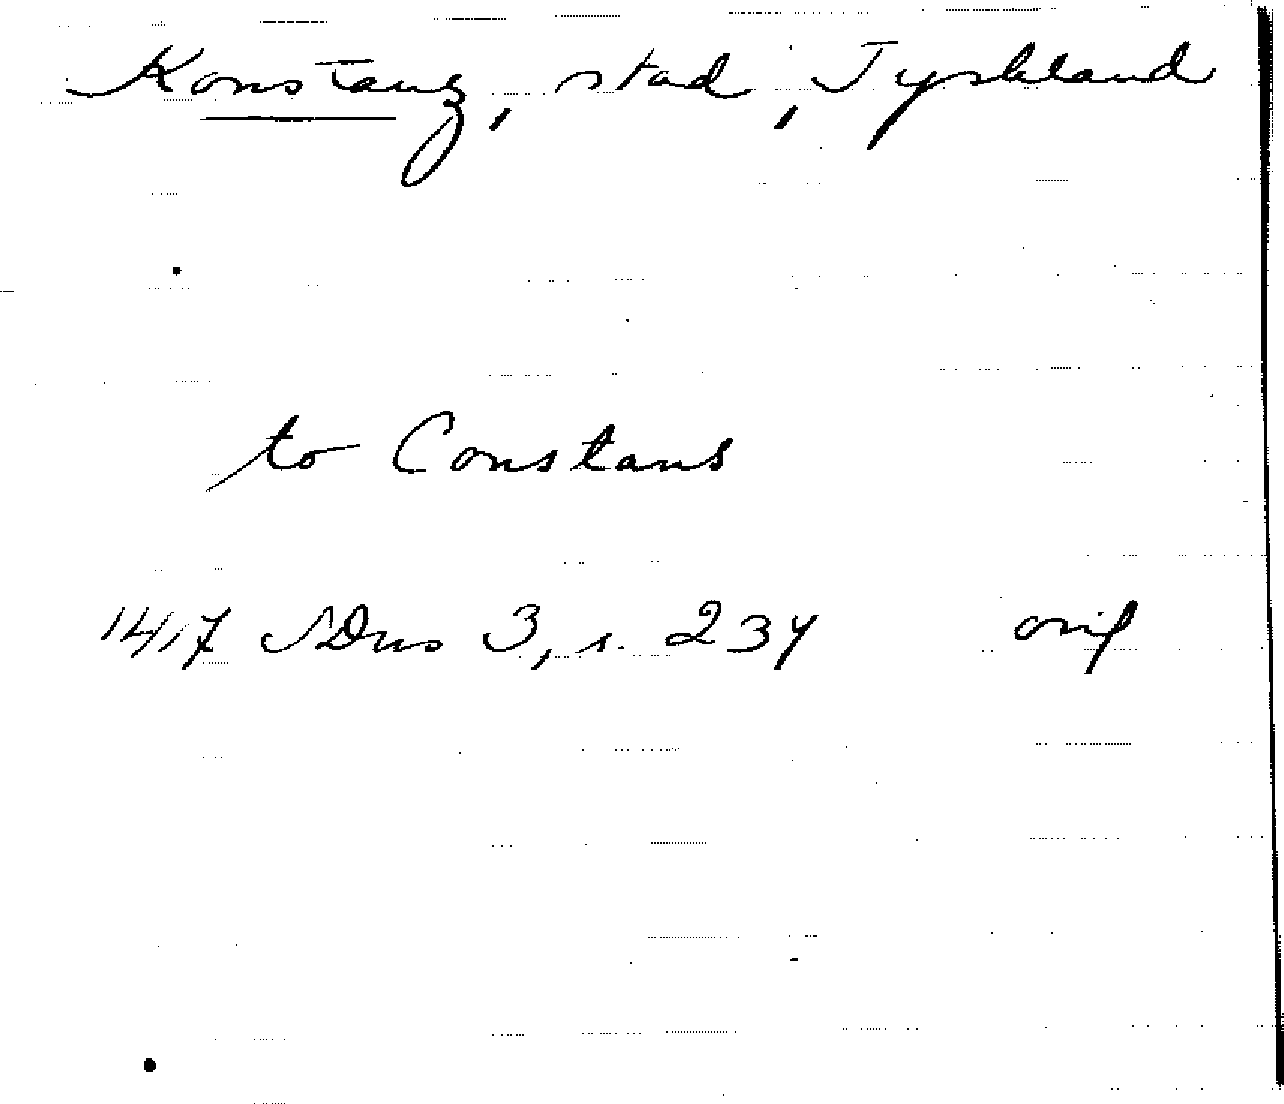 Konstanz, stad, Tyskland
to Constans
1417 SDns 3, s. 234 orig